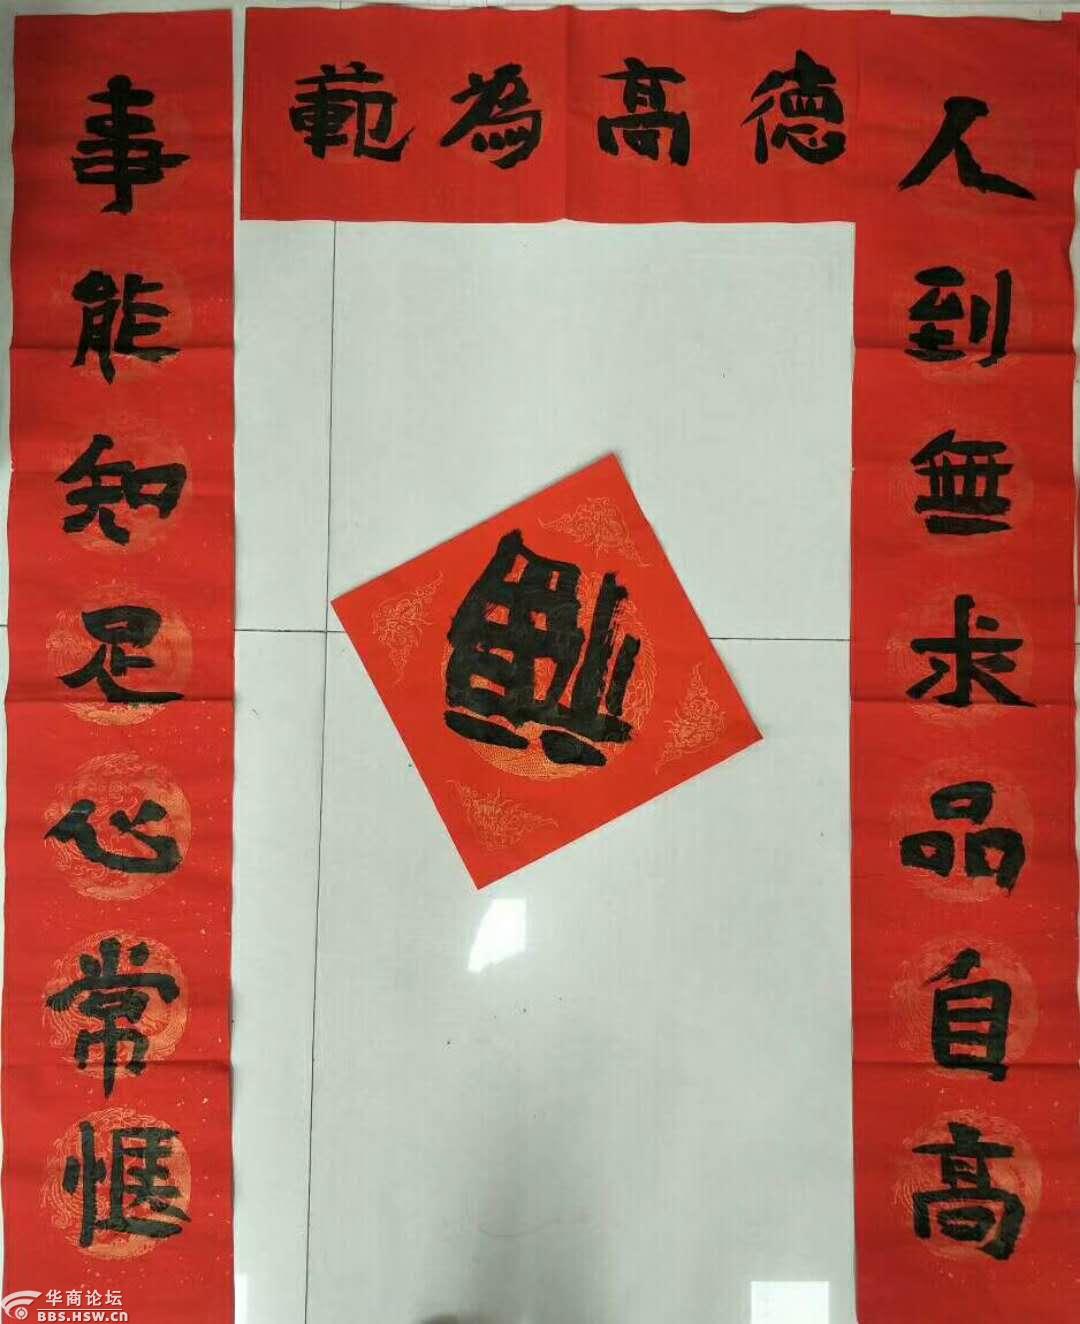 德高為範
人到無求品自高
事能知足心常愜
福
华商论坛
BBS.HSW.CN